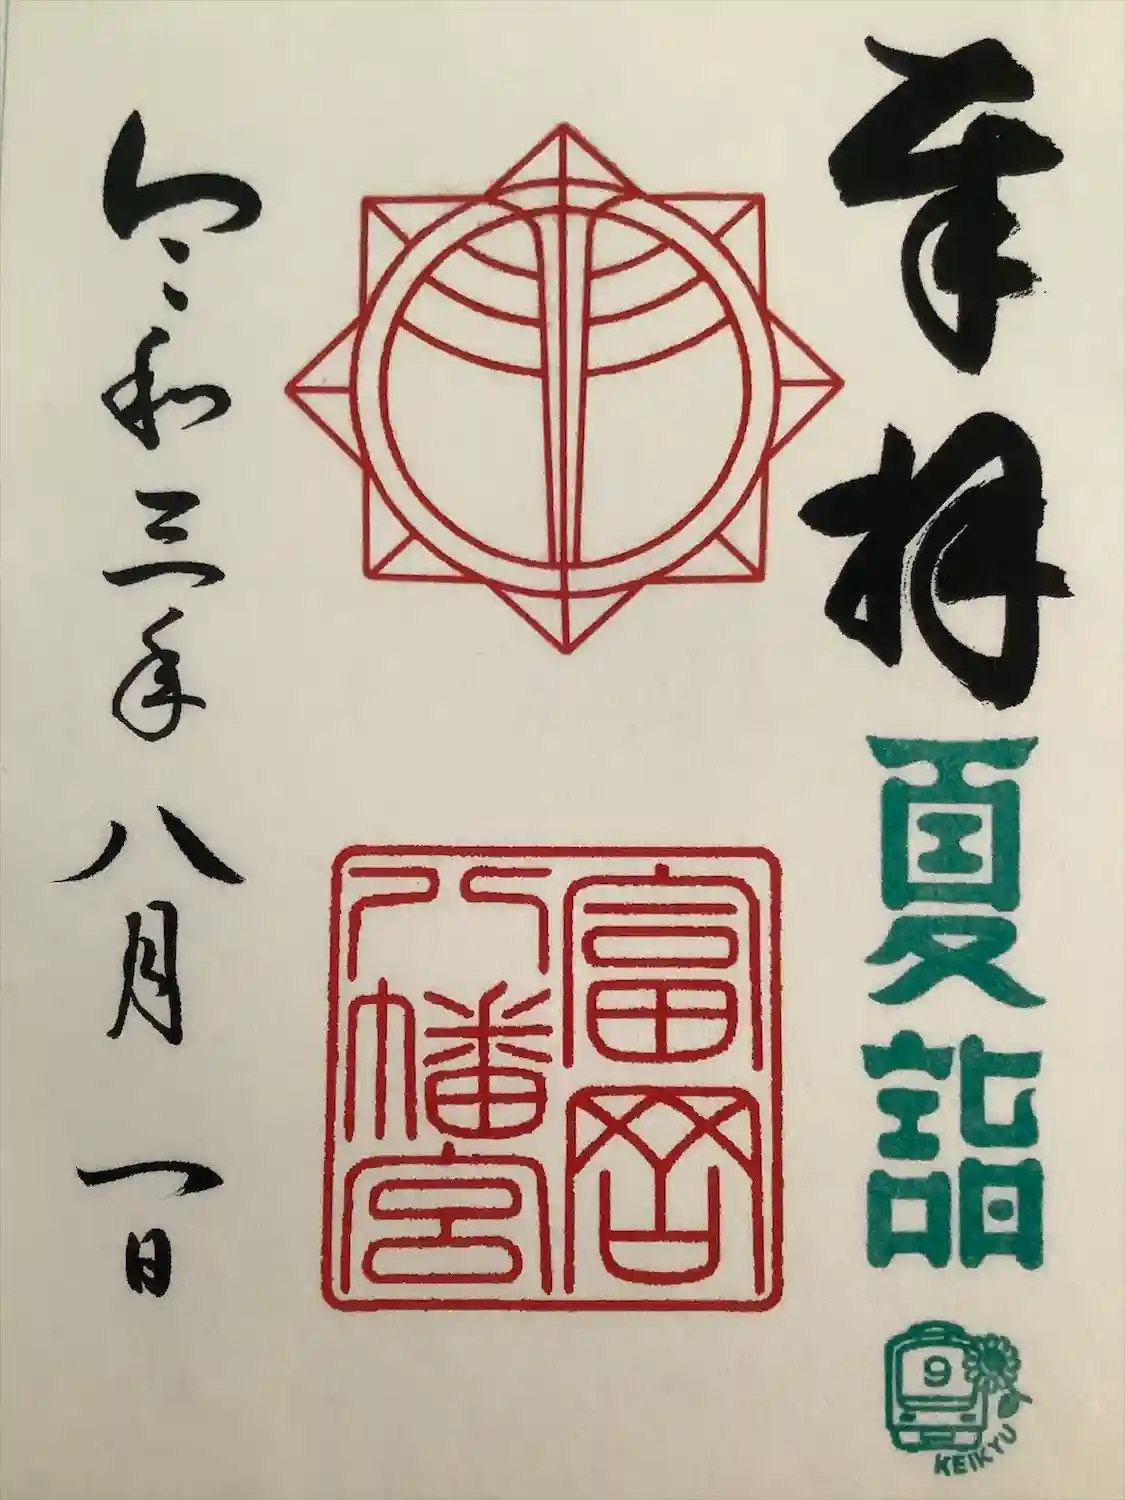 奉拝
夏詣
9
KEIKYU
富岡
八幡宮
令和三年八月一日